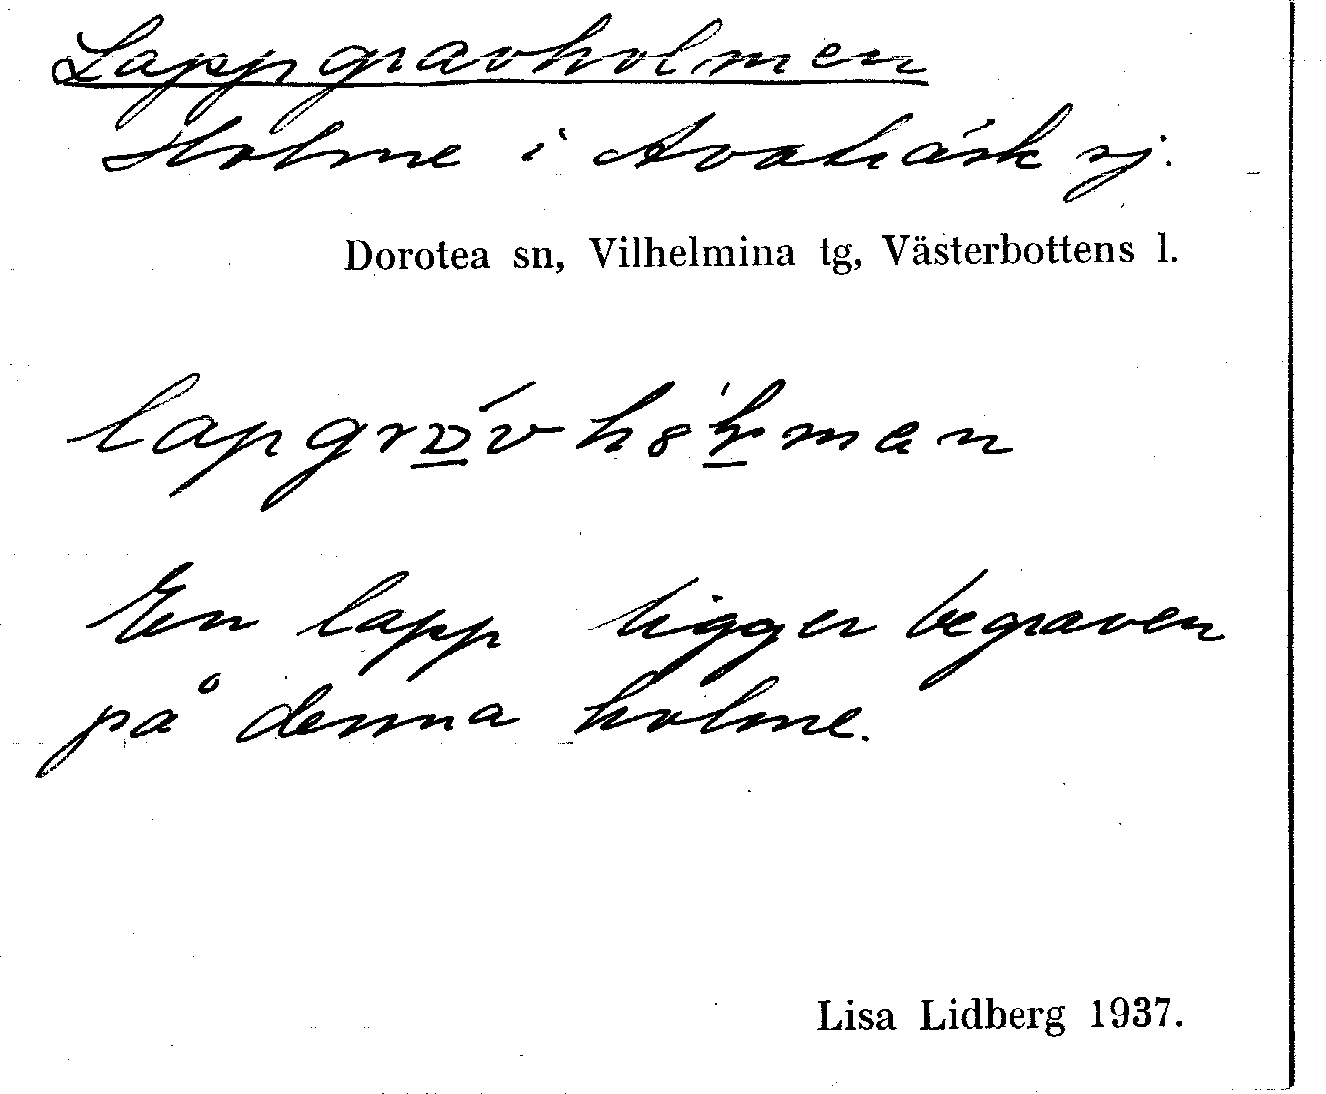 Lappgravholmen
Holme i Avaträsk sj.
Dorotea sn, Vilhelmina tg, Västerbottens l.
En lapp ligger begraven
på denna holme.
Lisa Lidberg 1937.